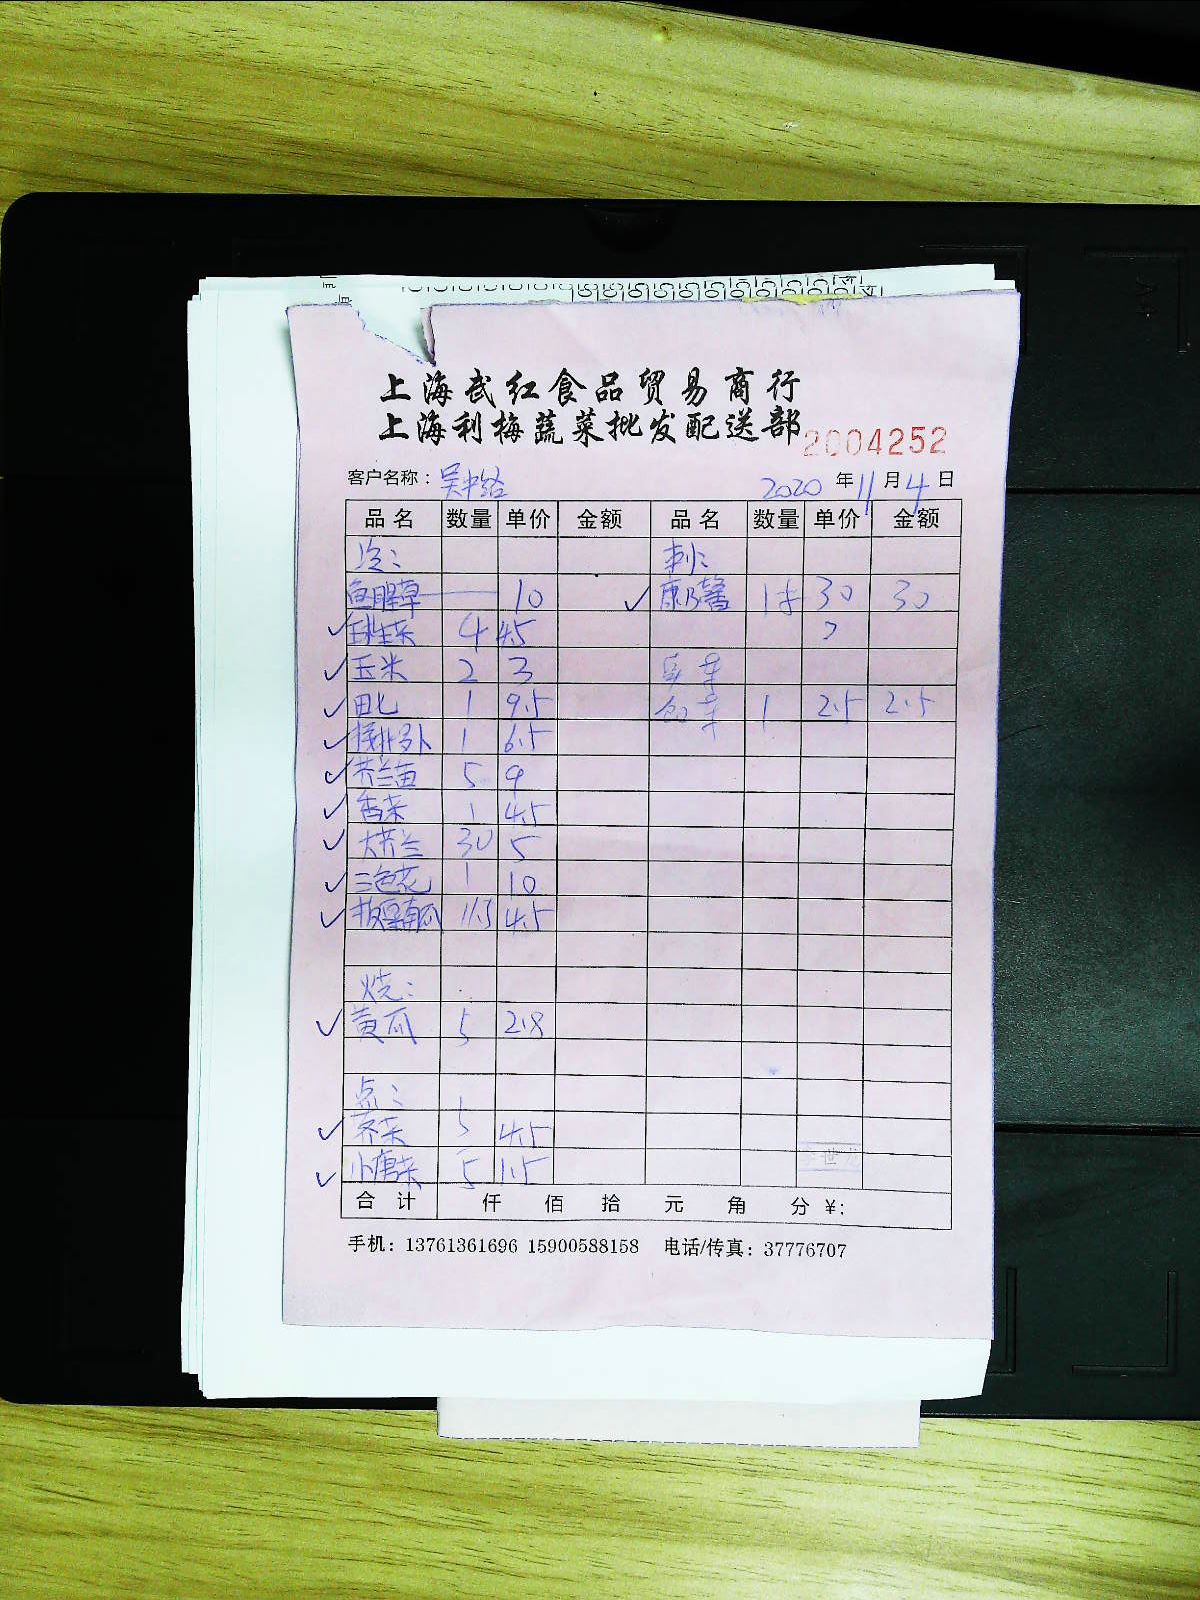 上海武红食品贸易商行
上海利梅蔬菜批发配送部
2004252
客户名称：吴中路 2020 年 11 月 4 日
品名 数量 单价 金额 品名 数量 单价 金额
冷： 刺：
鱼腥草 10 ✓ 康乃馨 1扎 30 30
✓ 球生菜 4 4.5
✓ 玉米 2 3
✓ 田七 1 9.5 1 2.5 2.5
✓ 1 6.5
✓ 芥兰苗 5 9
✓ 香菜 1 4.5
✓ 大芥兰 30 5
✓ 三色花 1 10
✓ 板栗南瓜 11.5 4.5
烧：
✓ 黄瓜 5 2.8
点：
✓ 荠菜 5 4.5
✓ 小唐菜 5 1.5
合计 仟 佰 拾 元 角 分 ￥:
手机：13761361696 15900588158 电话/传真：37776707